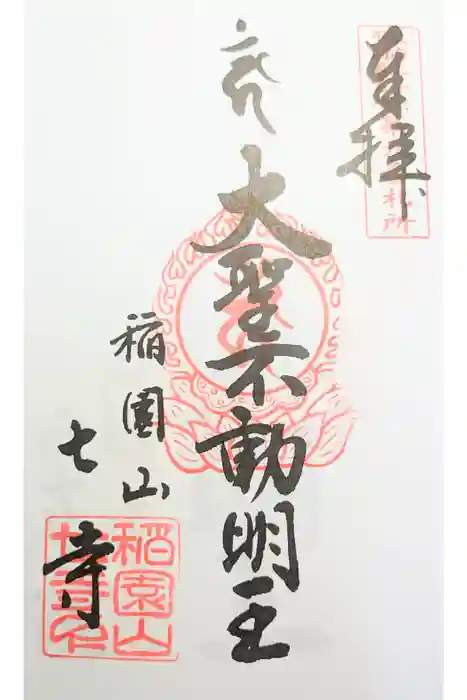 奉拝
大聖不動明王
稲園山
七寺
稲園山
七寺印
札所